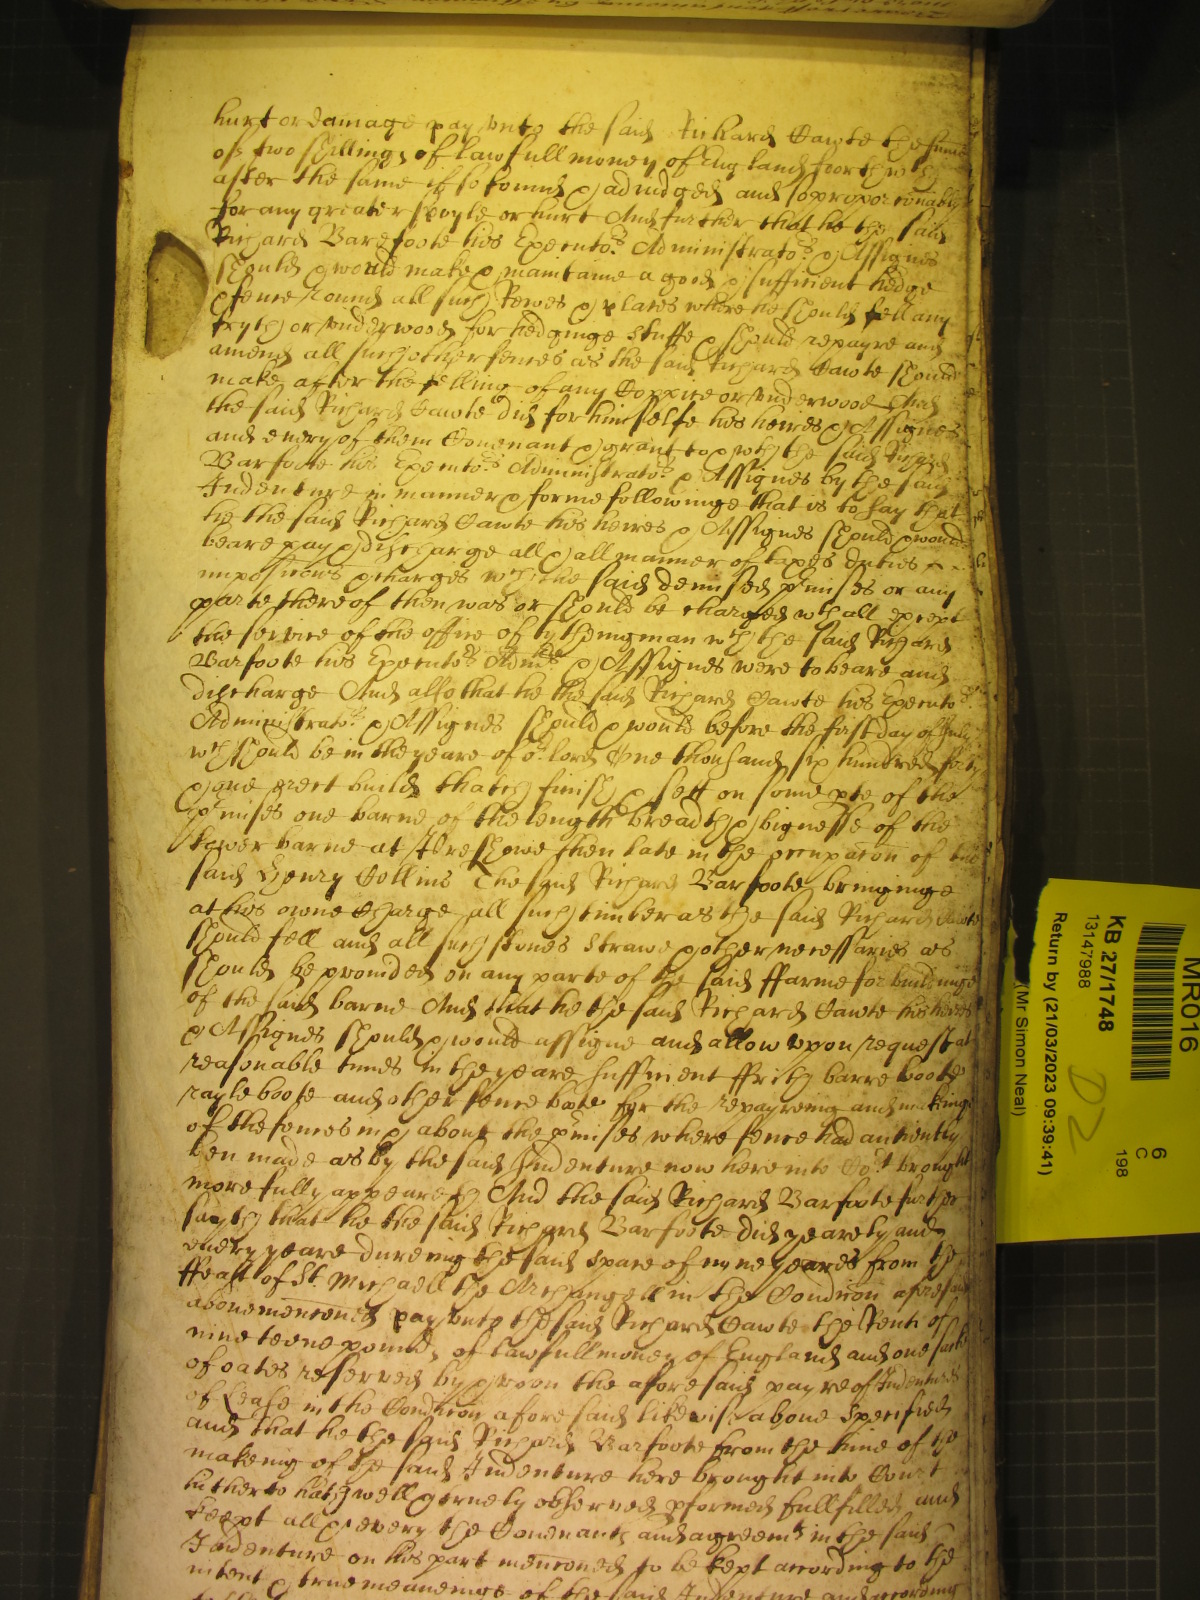 hurt or damage pay unto the said Richard Cawte the summe
of two shillings of lawfull money of England foorthwith
after the same is so found & adiudged and so proporconably
for any greater spoyle or hurt And further that he the said
Richard Barefoote his Executors Administrators & Assignes
should & would make & maintaine a good & sufficient hedge
& fence round all such & places where he should fell any
fryth or underwood for hedginge stuffe & should repayre and
amend all such other fences as the said Richard Cawte should
make after the felling of any Coppice or underwood And
the said Richard Cawte did for himselfe his heires & Assignes
and every of them Covenant & grant to & wth the said Richard
Barfoote his Executors Administrators & Assignes by the said
Indenture in manner & forme followinge that is to say that
he the said Richard Cawte his heires & Assignes should & would
beare pay & discharge all & all manner of taxes duties
imposicons & charges wth the said demised pmises or any
parte thereof then was or should be charged wthall except
the service of the office of tythingman wch the said Richard
Barfoote his Executors Admrs & Assignes were to beare and
discharge And also that he the said Richard Cawte his Executors
Administrators & Assignes should & would before the first day of July
wch should be in the yeare of or lord One thousand six hundred forty
& one erect build thatch finish & sett on some pte of the
pmises one barne of the length breadth & bignesse of the
lower barne at then late in the occupacon of the
said Henry Collins The said Richard Barfoote bringinge
at his owne Charge all such timber as the said Richard Cawte
should fell and all such stones strawe & other necessaries as
should be provided on any parte of the said ffarme for buildinge
of the said barne And that he the said Richard Cawte his heires
& Assignes should & would assigne and allow upon request at
reasonable times in the yeare sufficient ffrith barre boote
rayle boote and other fence boote for the repayreing and makinge
of the fences in & about the pmises where fence had antiently
ben made as by the said Indenture now here into Cort brought
more fully appeareth And the said Richard Barfoote further
sayth that he the said Richard Barfoote did yearely and
every yeare dureing the said space of nyne yeares from the
ffeast of St. Michaell the Archangell in the Condicon aforesaid
abovemenconed pay unto the said Richard Cawte the Rent of
nineteene pounds of lawfull money of England and one sacke
of oates reserved by & upon the aforesaid payre of Indentures
of Lease in the Condicon aforesaid likewise above specified
and that he the said Richard Barfoote from the time of the
makeing of the said Indenture here brought into Court
hitherto hath well & truely observed pformed fullfilled and
keept all & every the Covenants and agreemts in the said
Indenture on his part menconed to be kept according to the
intent & true meaneinge of the said Indenture and according
MR016
6
C
198
KB 27/1748
13147988
Return by (21/03/2023 09:39:41)
(Mr Simon Neal)
D2